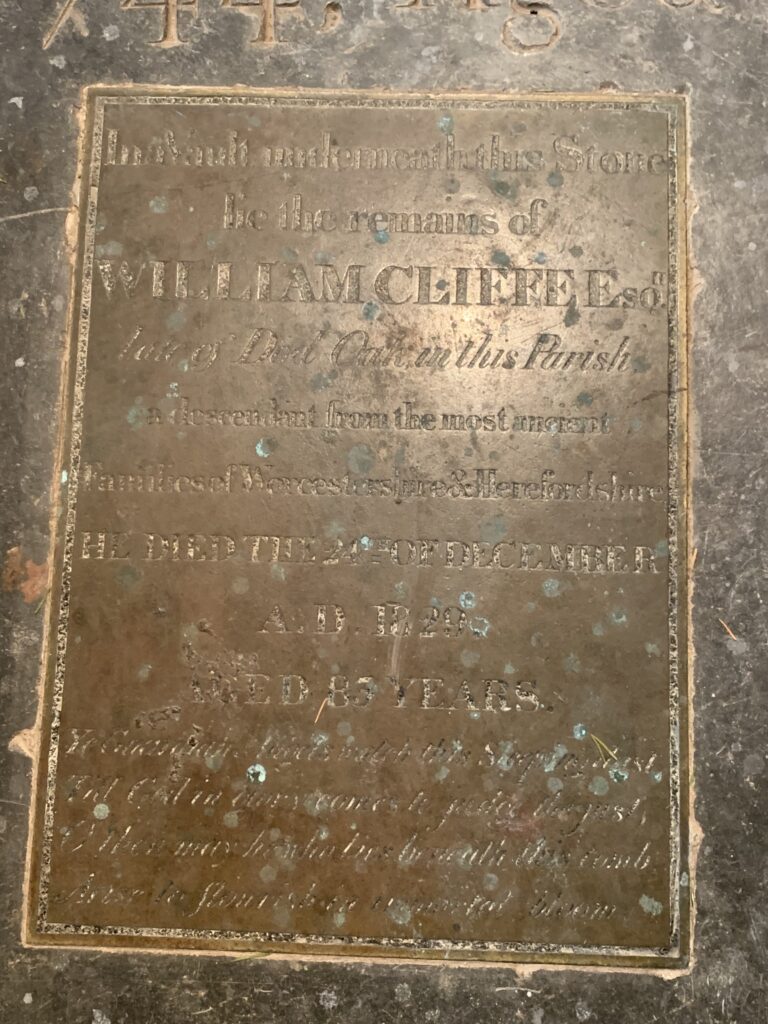 744, Aged
In a Vault underneath this Stone
lie the remains of
WILLIAM CLIFFE Esqr.
late of Dod Oak, in this Parish
a descendant from the most ancient
Families of Worcestershire & Herefordshire
HE DIED THE 24TH OF DECEMBER
A.D. 1829.
AGED 85 YEARS.
Ye Guardian watch this Sleeping dust,
Till God in glory comes to judge the just,
O then may he who lies beneath this tomb
Arise to flourish in immortal bloom